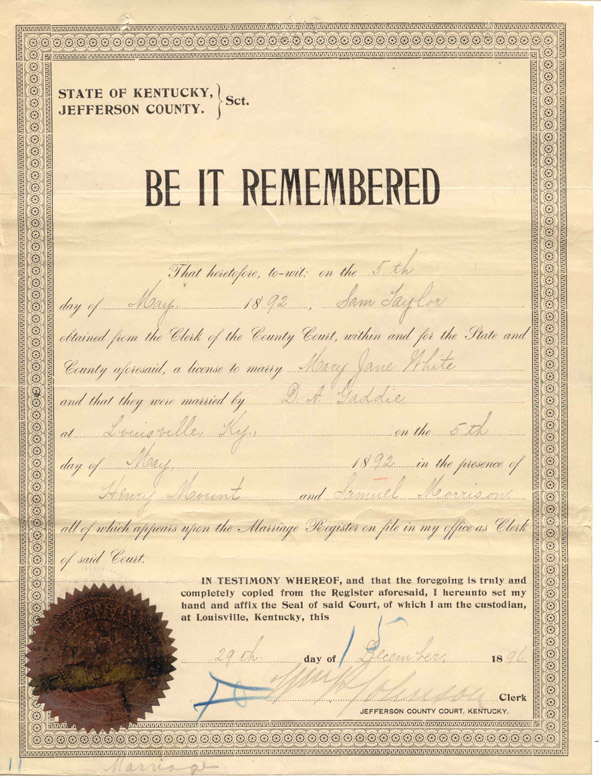 STATE OF KENTUCKY,
JEFFERSON COUNTY. } Sct.
BE IT REMEMBERED
That heretofore, to-wit: on the 5th
day of May 1892, Sam Taylor
obtained from the Clerk of the County Court, within and for the State and
County aforesaid, a license to marry Mary Jane White
and that they were married by D. A. Gaddie
at Louisville Ky, on the 5th
day of May, 1892 in the presence of
Henry Mount and Samuel Morrison
all of which appears upon the Marriage Register on file in my office as Clerk
of said Court.
IN TESTIMONY WHEREOF, and that the foregoing is truly and
completely copied from the Register aforesaid, I hereunto set my
hand and affix the Seal of said Court, of which I am the custodian,
at Louisville, Kentucky, this
29th day of December, 1896
Johnson Clerk
JEFFERSON COUNTY COURT, KENTUCKY.
11 Marriage